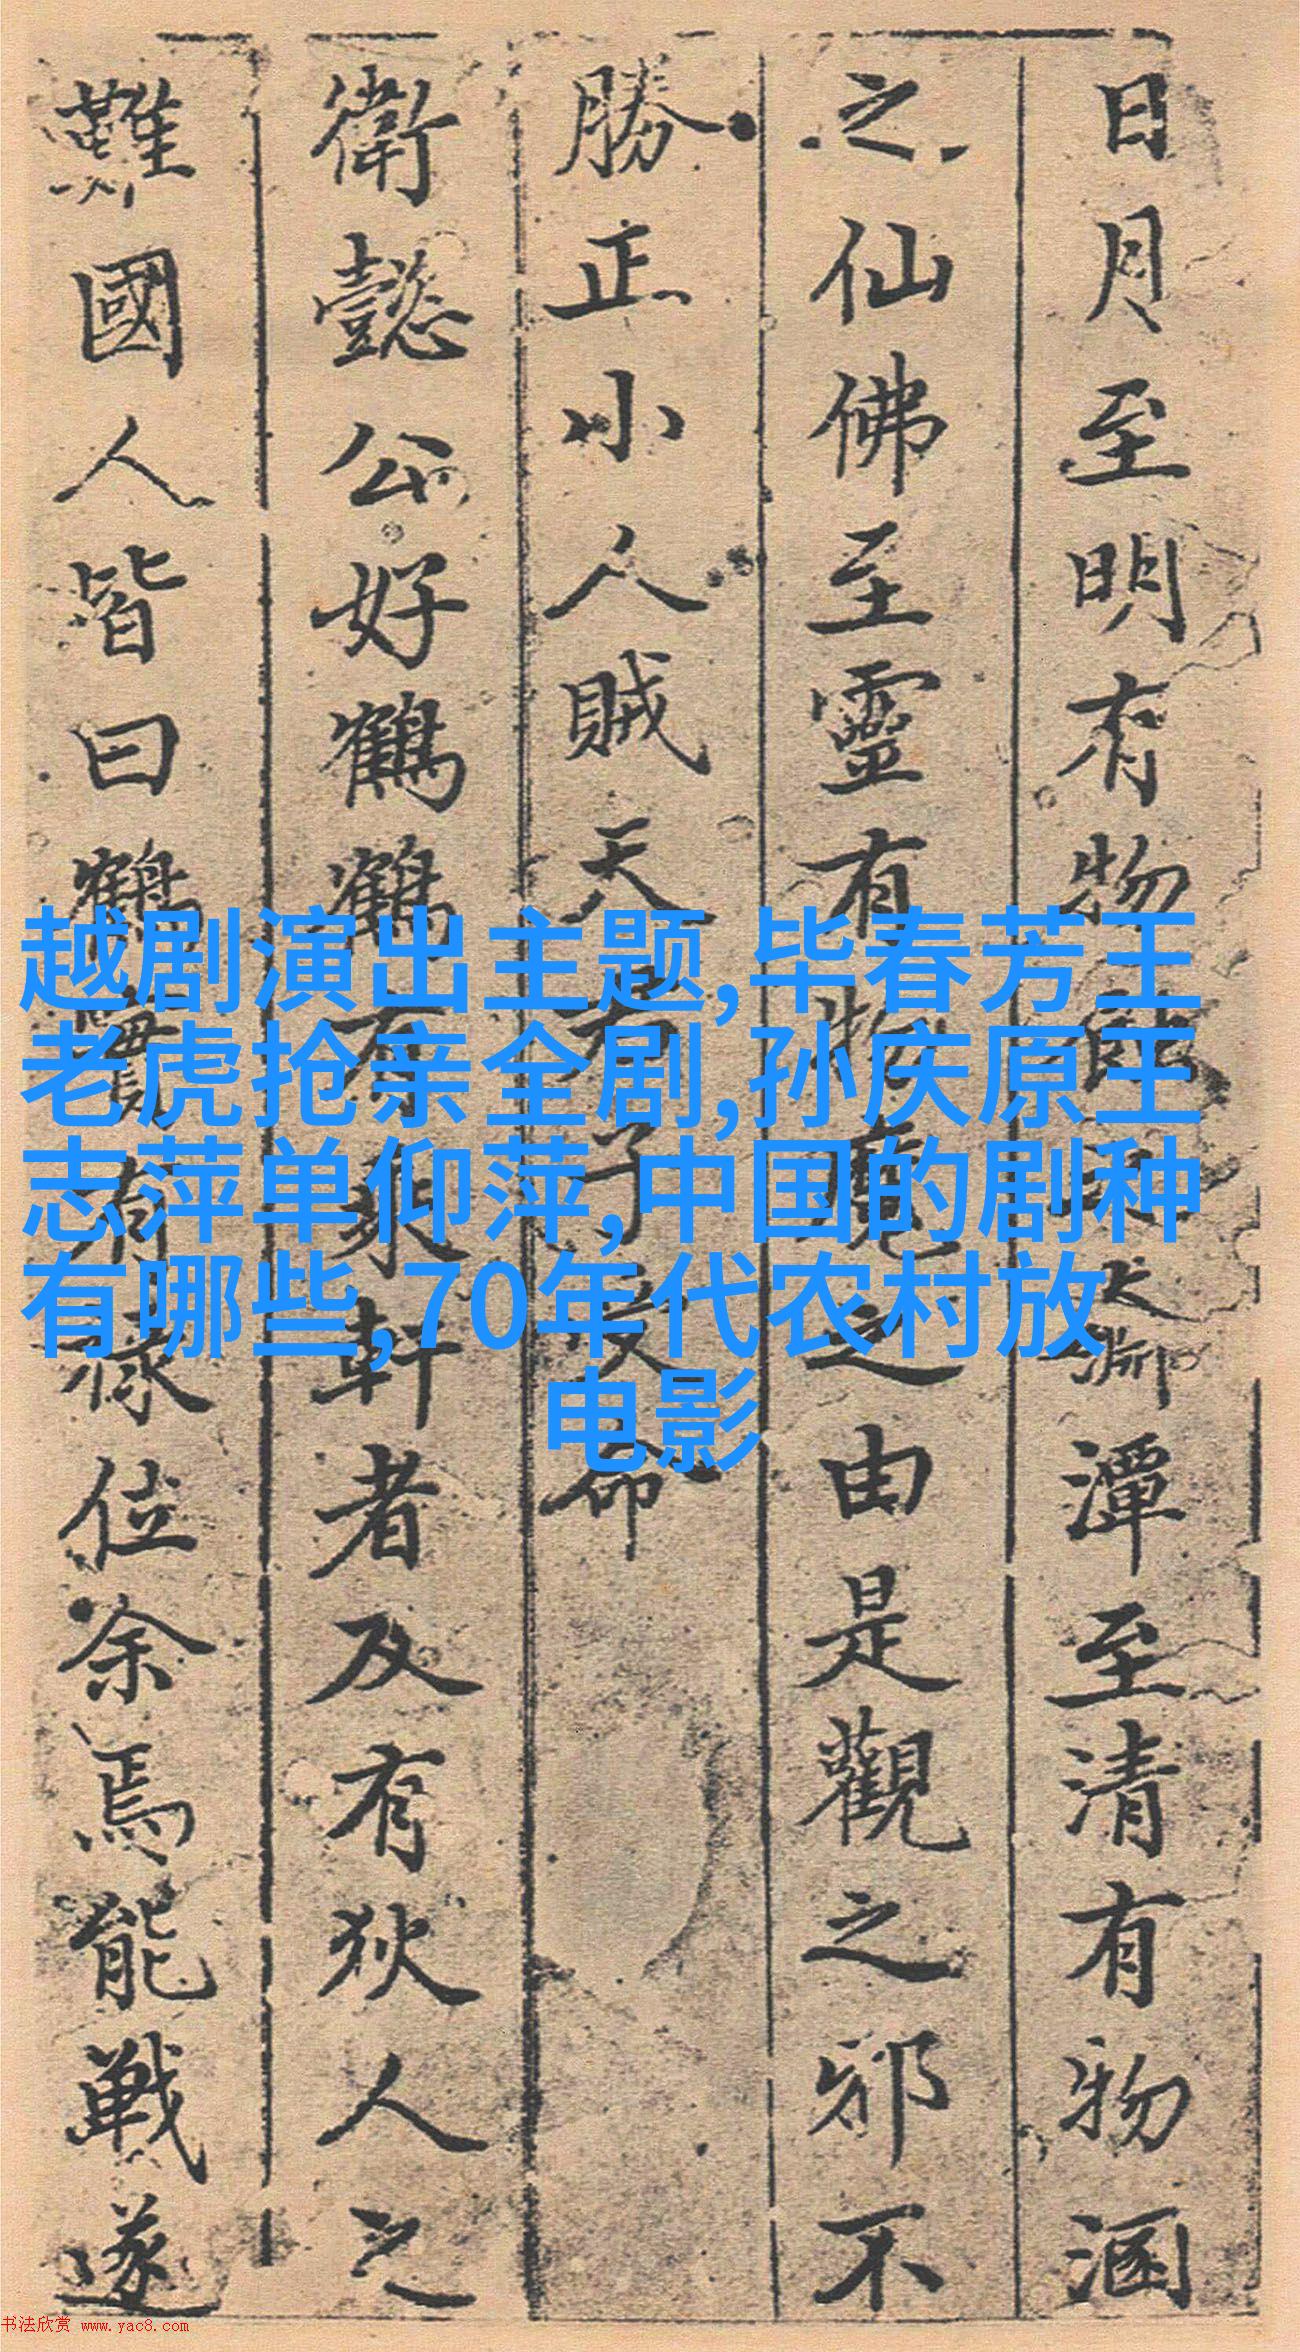 日月至明有物大淵潭至清有物涵
之仙佛至靈有物魔之由是觀之邪不
勝正小人賊天子命
衛懿公好鶴鶴有乘軒者及有狄人之
難國人皆曰鶴實有祿位余焉能戰遂
越剧演出主题,毕春芳王
老虎抢亲全剧,孙庆原王
志萍单仰萍,中国的剧种
有哪些,70年代农村放
电影
书法欣赏 www.yac8.com